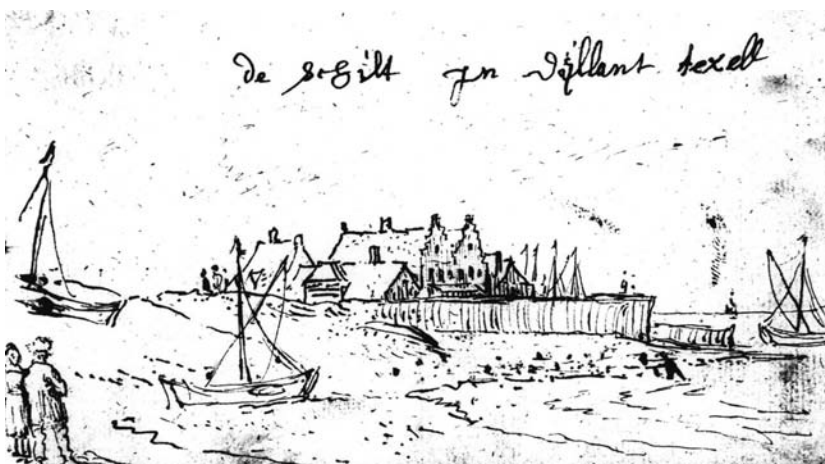 de schilt jn d'ijllant texell